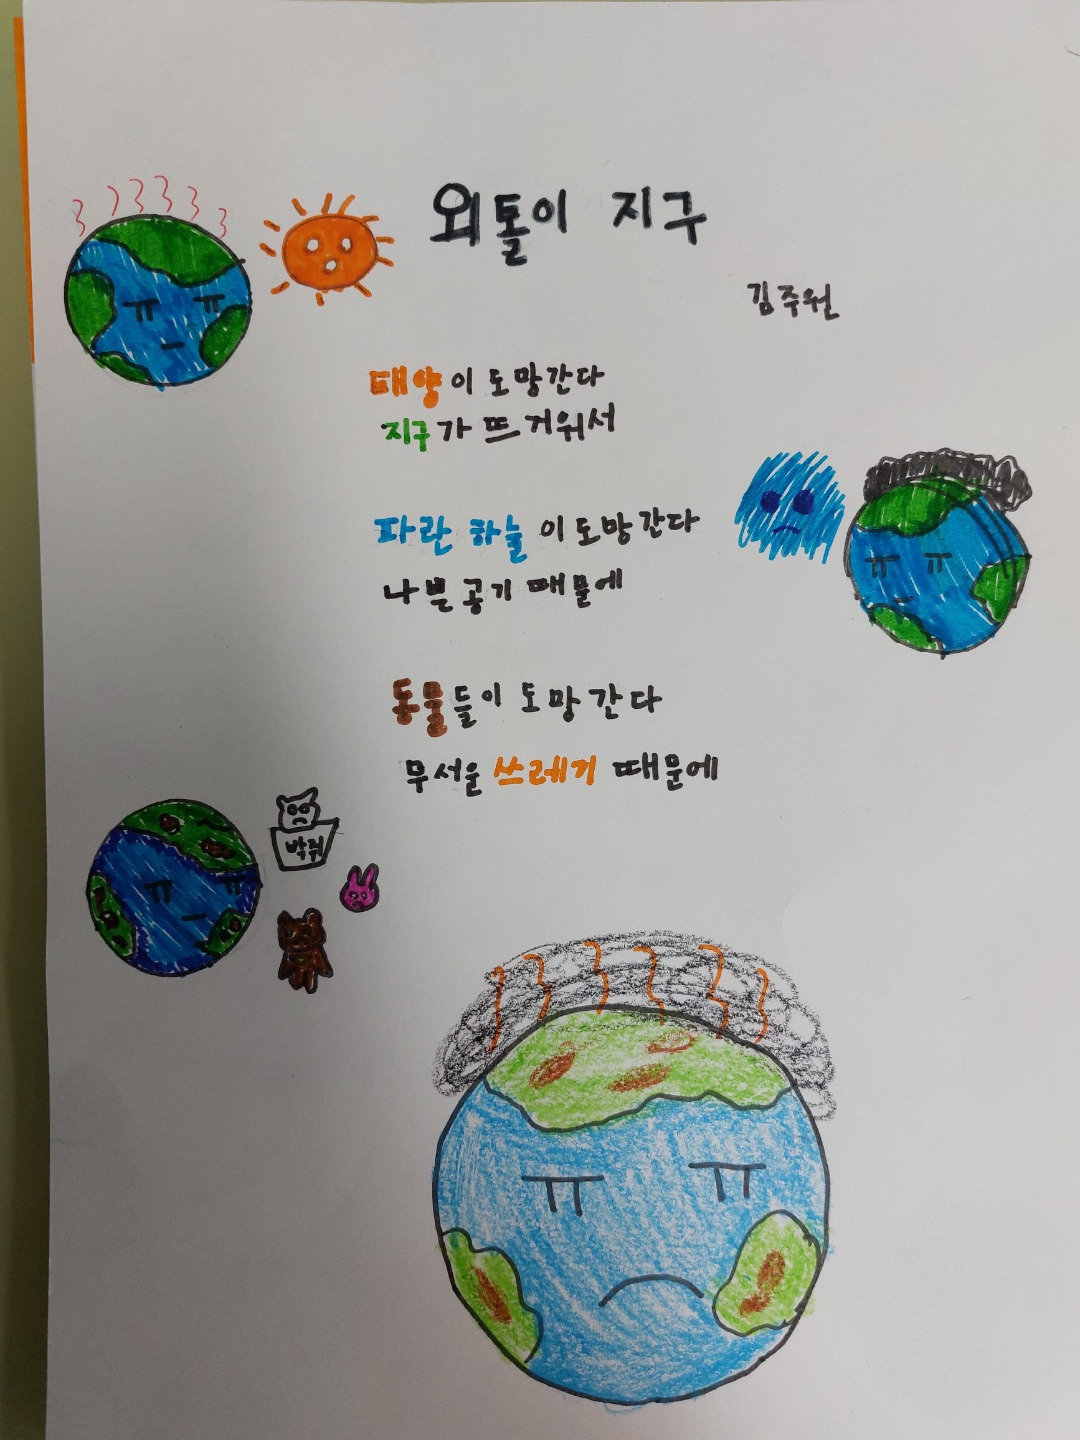 외톨이 지구
김주원
태양이 도망간다
지구가 뜨거워서
파란 하늘이 도망간다
나쁜 공기 때문에
동물들이 도망간다
무서운 쓰레기 때문에
박쥐